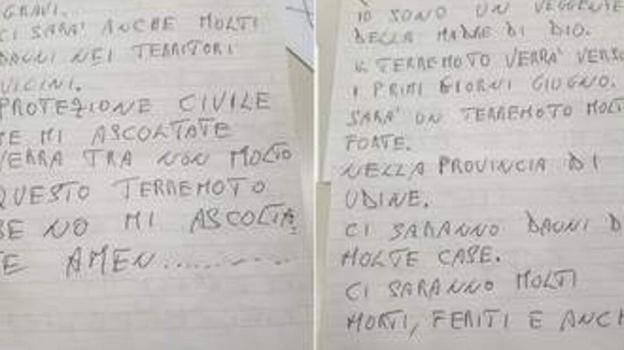 GRAVI.
CI SARA' ANCHE MOLTI
DANNI NEI TERRITORI
VICINI.
PROTEZIONE CIVILE
SE MI ASCOLTATE
VERRA TRA NON MOLTO
QUESTO TERREMOTO
SE NO MI ASCOLTA
TE AMEN...........
IO SONO UN VEGGENTE
DELLA MADRE DI DIO.
IL TERREMOTO VERRA' VERSO
I PRIMI GIORNI GIUGNO.
SARA' UN TERREMOTO MOLT
FORTE.
NELLA PROVINCIA DI
UDINE.
CI SARANNO DANNI D
MOLTE CASE.
CI SARANNO MOLTI
MORTI, FERITI E ANCH